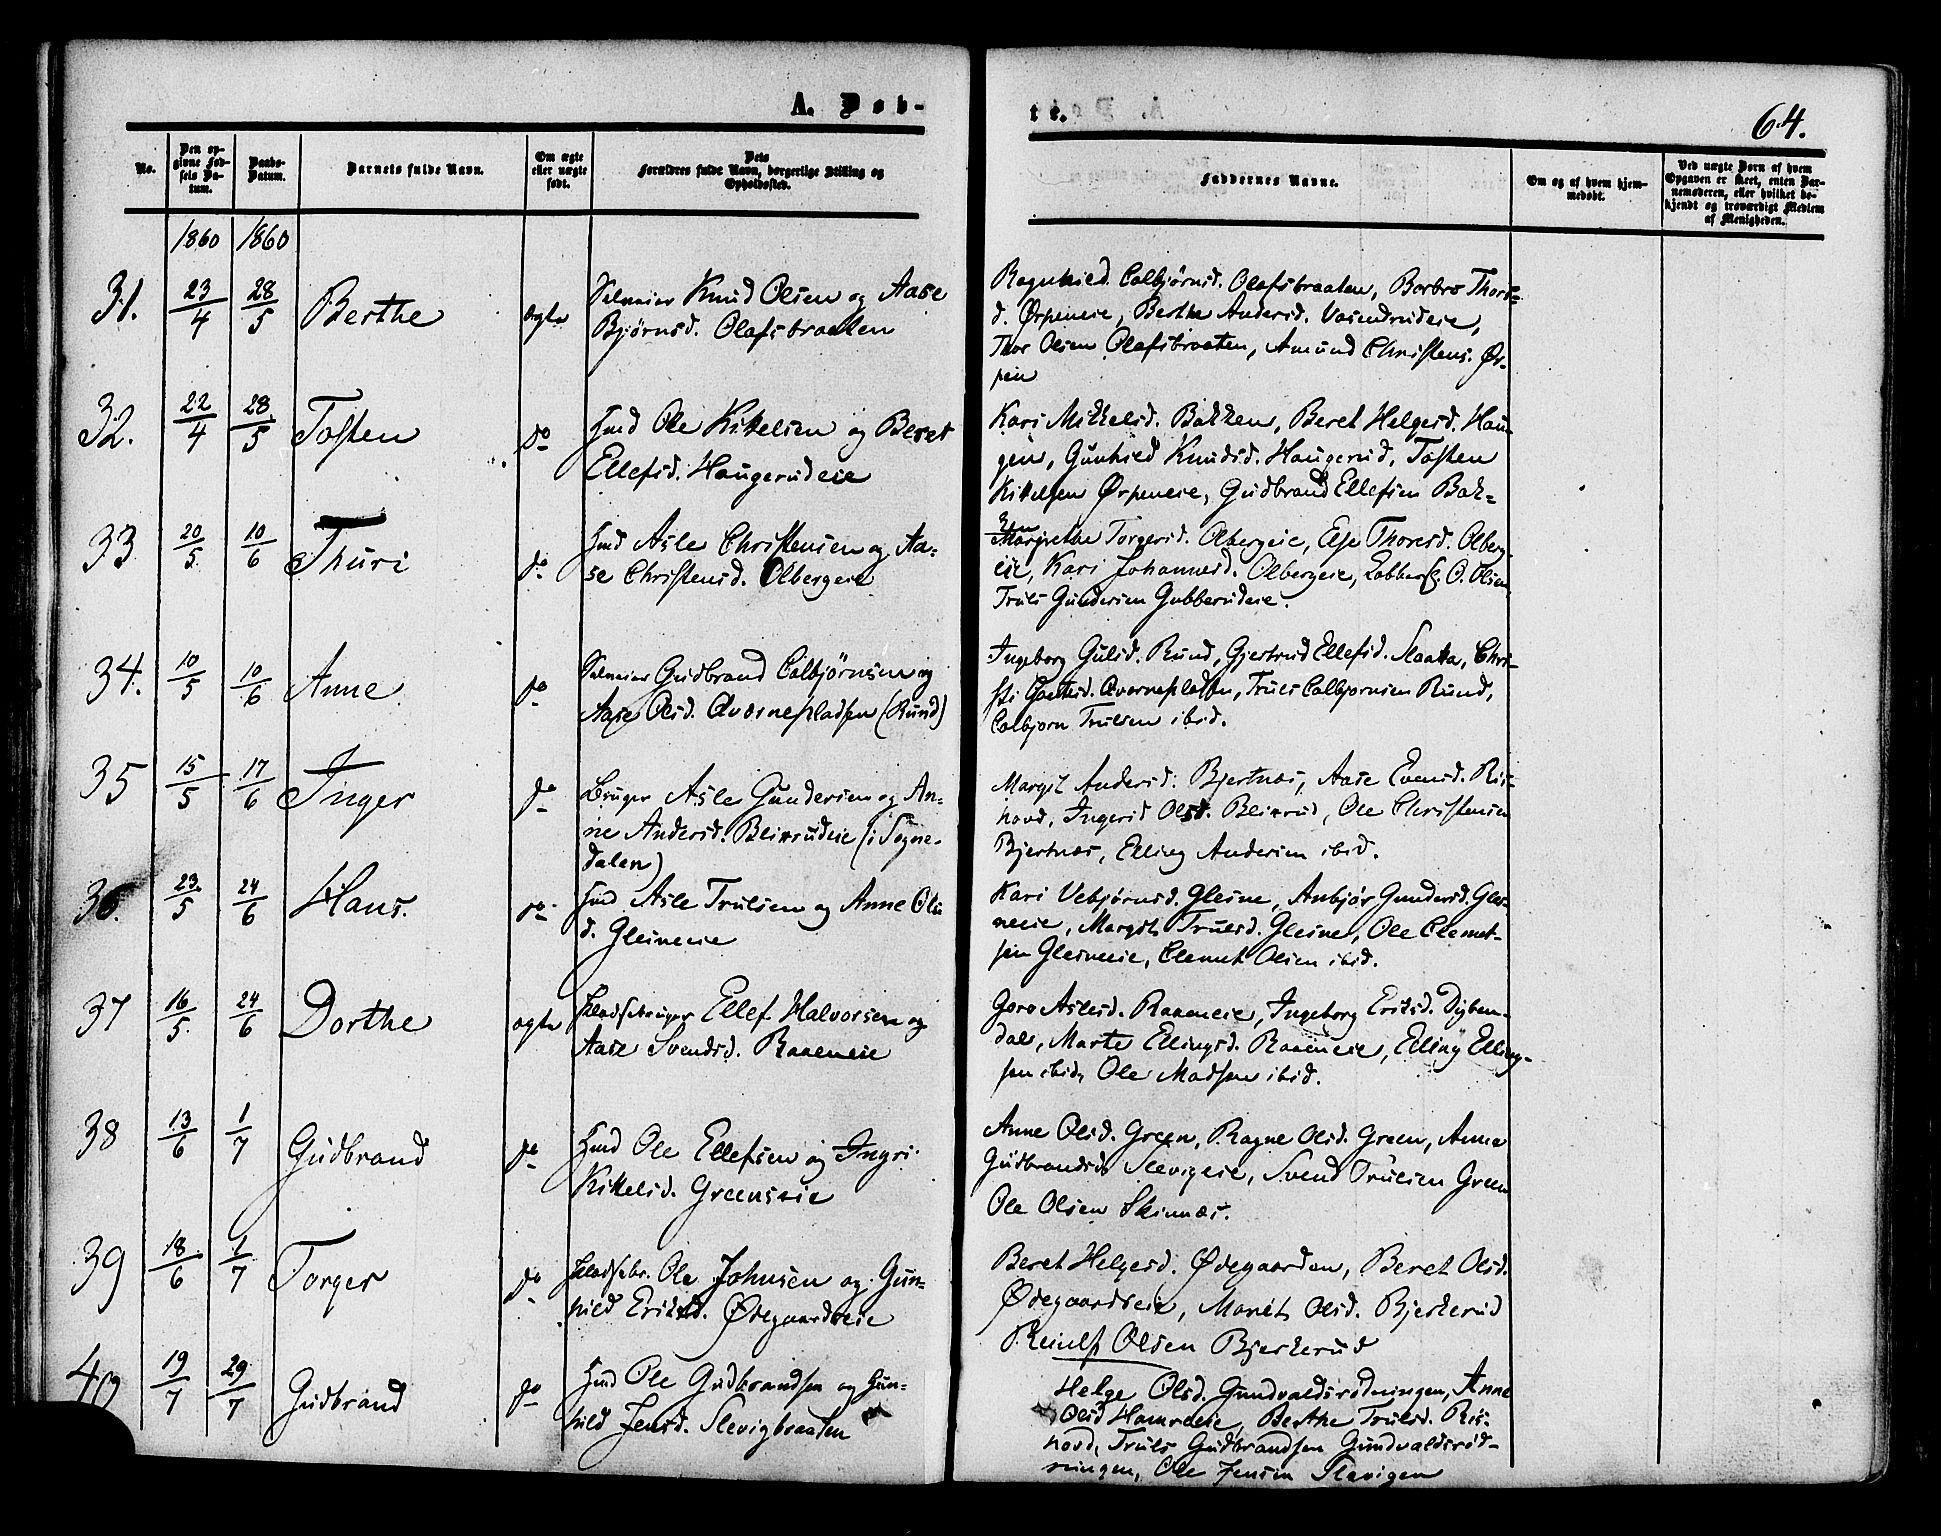 A. Døb-
te.
64.
No.
Den op-
givne Fød-
sels Da-
tum.
Daabs-
Datum.
Barnets fulde Navn.
Om ægte
eller uægte
født.
Dets
Forældres fulde Navn, borgerlige Stilling og
Opholdssted.
Faddernes Navne.
Om og af hvem hjem-
medøbt.
Ved uægte Børn af hvem
Opgaven er skeet, enten Bar-
nemoderen, eller hvilket be-
kjendt og troværdigt Medlem
af Menigheden.
1860 1860
31. 23/4 28/5 Berthe ægte
Selveier Knud Olsen og Aase
Bjørnsd. Olafsbraaten
Ragnhild Colbjørnsd. Olafsbraaten, Barbro Thors-
d. Ørpeneie, Berthe Andersd. Vasendrudeie,
Thor Olsen Olafsbraaten, Amund Christens. Ør-
pen
32. 22/4 28/5 Tosten do
Hmd Ole Kittelsen og Beret
Ellefsd. Haugerudeie
Kari Mikkelsd. Bakken, Beret Helgesd. Hau-
gen, Gunhild Knudsd. Haugerud, Tosten
Kittelsen Ørpeneie, Gudbrand Ellefsen Bak-
ken
33 20/5 10/6 Thuri do
Hmd Asle Christensen og Aa-
se Christensd. Olbergeie
Margrethe Torgersd. Olbergeie, Else Thoresd. Olberg-
eie, Kari Johannesd. Olbergeie, O. Olsen
Truls Gundersen Gubberudeie.
34. 10/5 10/6 Anne do
Selveier Gudbrand Colbjørnsen og
Aase Olsd. Qværnepladsen (Rund)
Ingeborg Gulsd. Rund, Gjertrud Ellefsd. Slaatta, Chri-
sti Qværnepladsen, Truls Colbjørnsen Rund,
Colbjørn Trulsen ibid.
35 15/5 17/6 Inger do
Bruger Asle Gundersen og An-
ne Andersd. Bleikrudeie (i Sogne-
dalen)
Margit Andersd. Bjertnæs, Aase Evensd. Ris-
hovd, Ingerid Olsd. Bleikrud, Ole Christensen
Bjertnæs, Elling Andersen ibid.
36. 23/5 24/6 Hans. do
Hmd Asle Trulsen og Anne Ols
d. Glesneeie
Kari Vebjørnsd. Glesne, Anbjør Gundersd. Gles-
neeie, Margit Trulsd. Glesne, Ole Clemet-
sen Glesneeie, Clemet Olsen ibid.
37 16/5 24/6 Dorthe ægte
Pladsebruger Ellef Halvorsen og
Aase Svendsd. Raaeneie
Goro Aslesd. Raaeneie, Ingeborg Eriksd. Dyben-
dal, Marte Ellingsd. Raaeneie, Elling Elling-
sen ibid, Ole Madsen ibid.
38 13/6 1/7 Gudbrand do
Hmd Ole Ellefsen og Ingri
Kittelsd. Greenseie
Anne Olsd. Green, Ragne Olsd. Green, Anne
Gudbrandsd. Slevigeie, Svend Trulsen Green
Ole Olsen Skinnæs.
39 18/6 1/7 Torger do
Pladsebr. Ole Johnsen og Gun-
hild Eriksd. Ødegaardseie
Beret Helgesd. Ødegaarden, Beret Olsd.
Ødegaardseie, Marit Olsd. Bjerkerud
Reiulf Olsen Bjerkerud
40 19/7 29/7 Gudbrand do
Hmd Ole Gudbrandsen og Gun-
hild Jensd. Slevigbraaten
Helge Olsd. Gundvaldsrødningen, Anne
Olsd Hamreeie, Berthe Trulsd. Ris-
hovd, Truls Gudbrandsen Gundvaldsrød-
ningen, Ole Jensen Slevigen